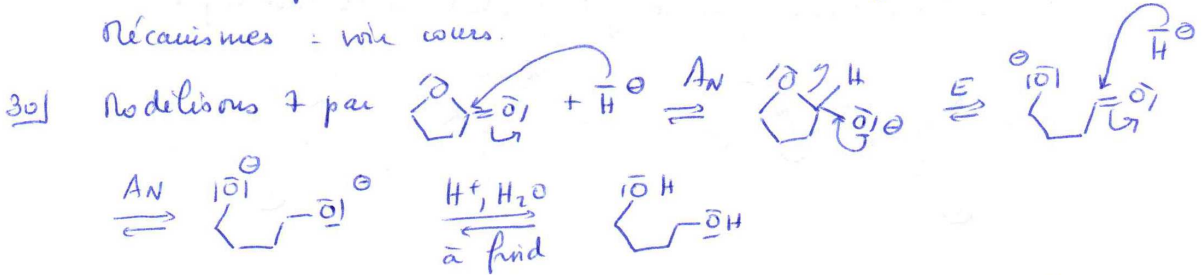 Mécanismes : voir cours.
30) Modélisons 7 par O =O + H⊖ ⇌ AN O H O⊖ ⇌ E ⊖ O =O H⊖
⇌ AN O⊖ O⊖ ⇌ H+, H2O à froid OH OH